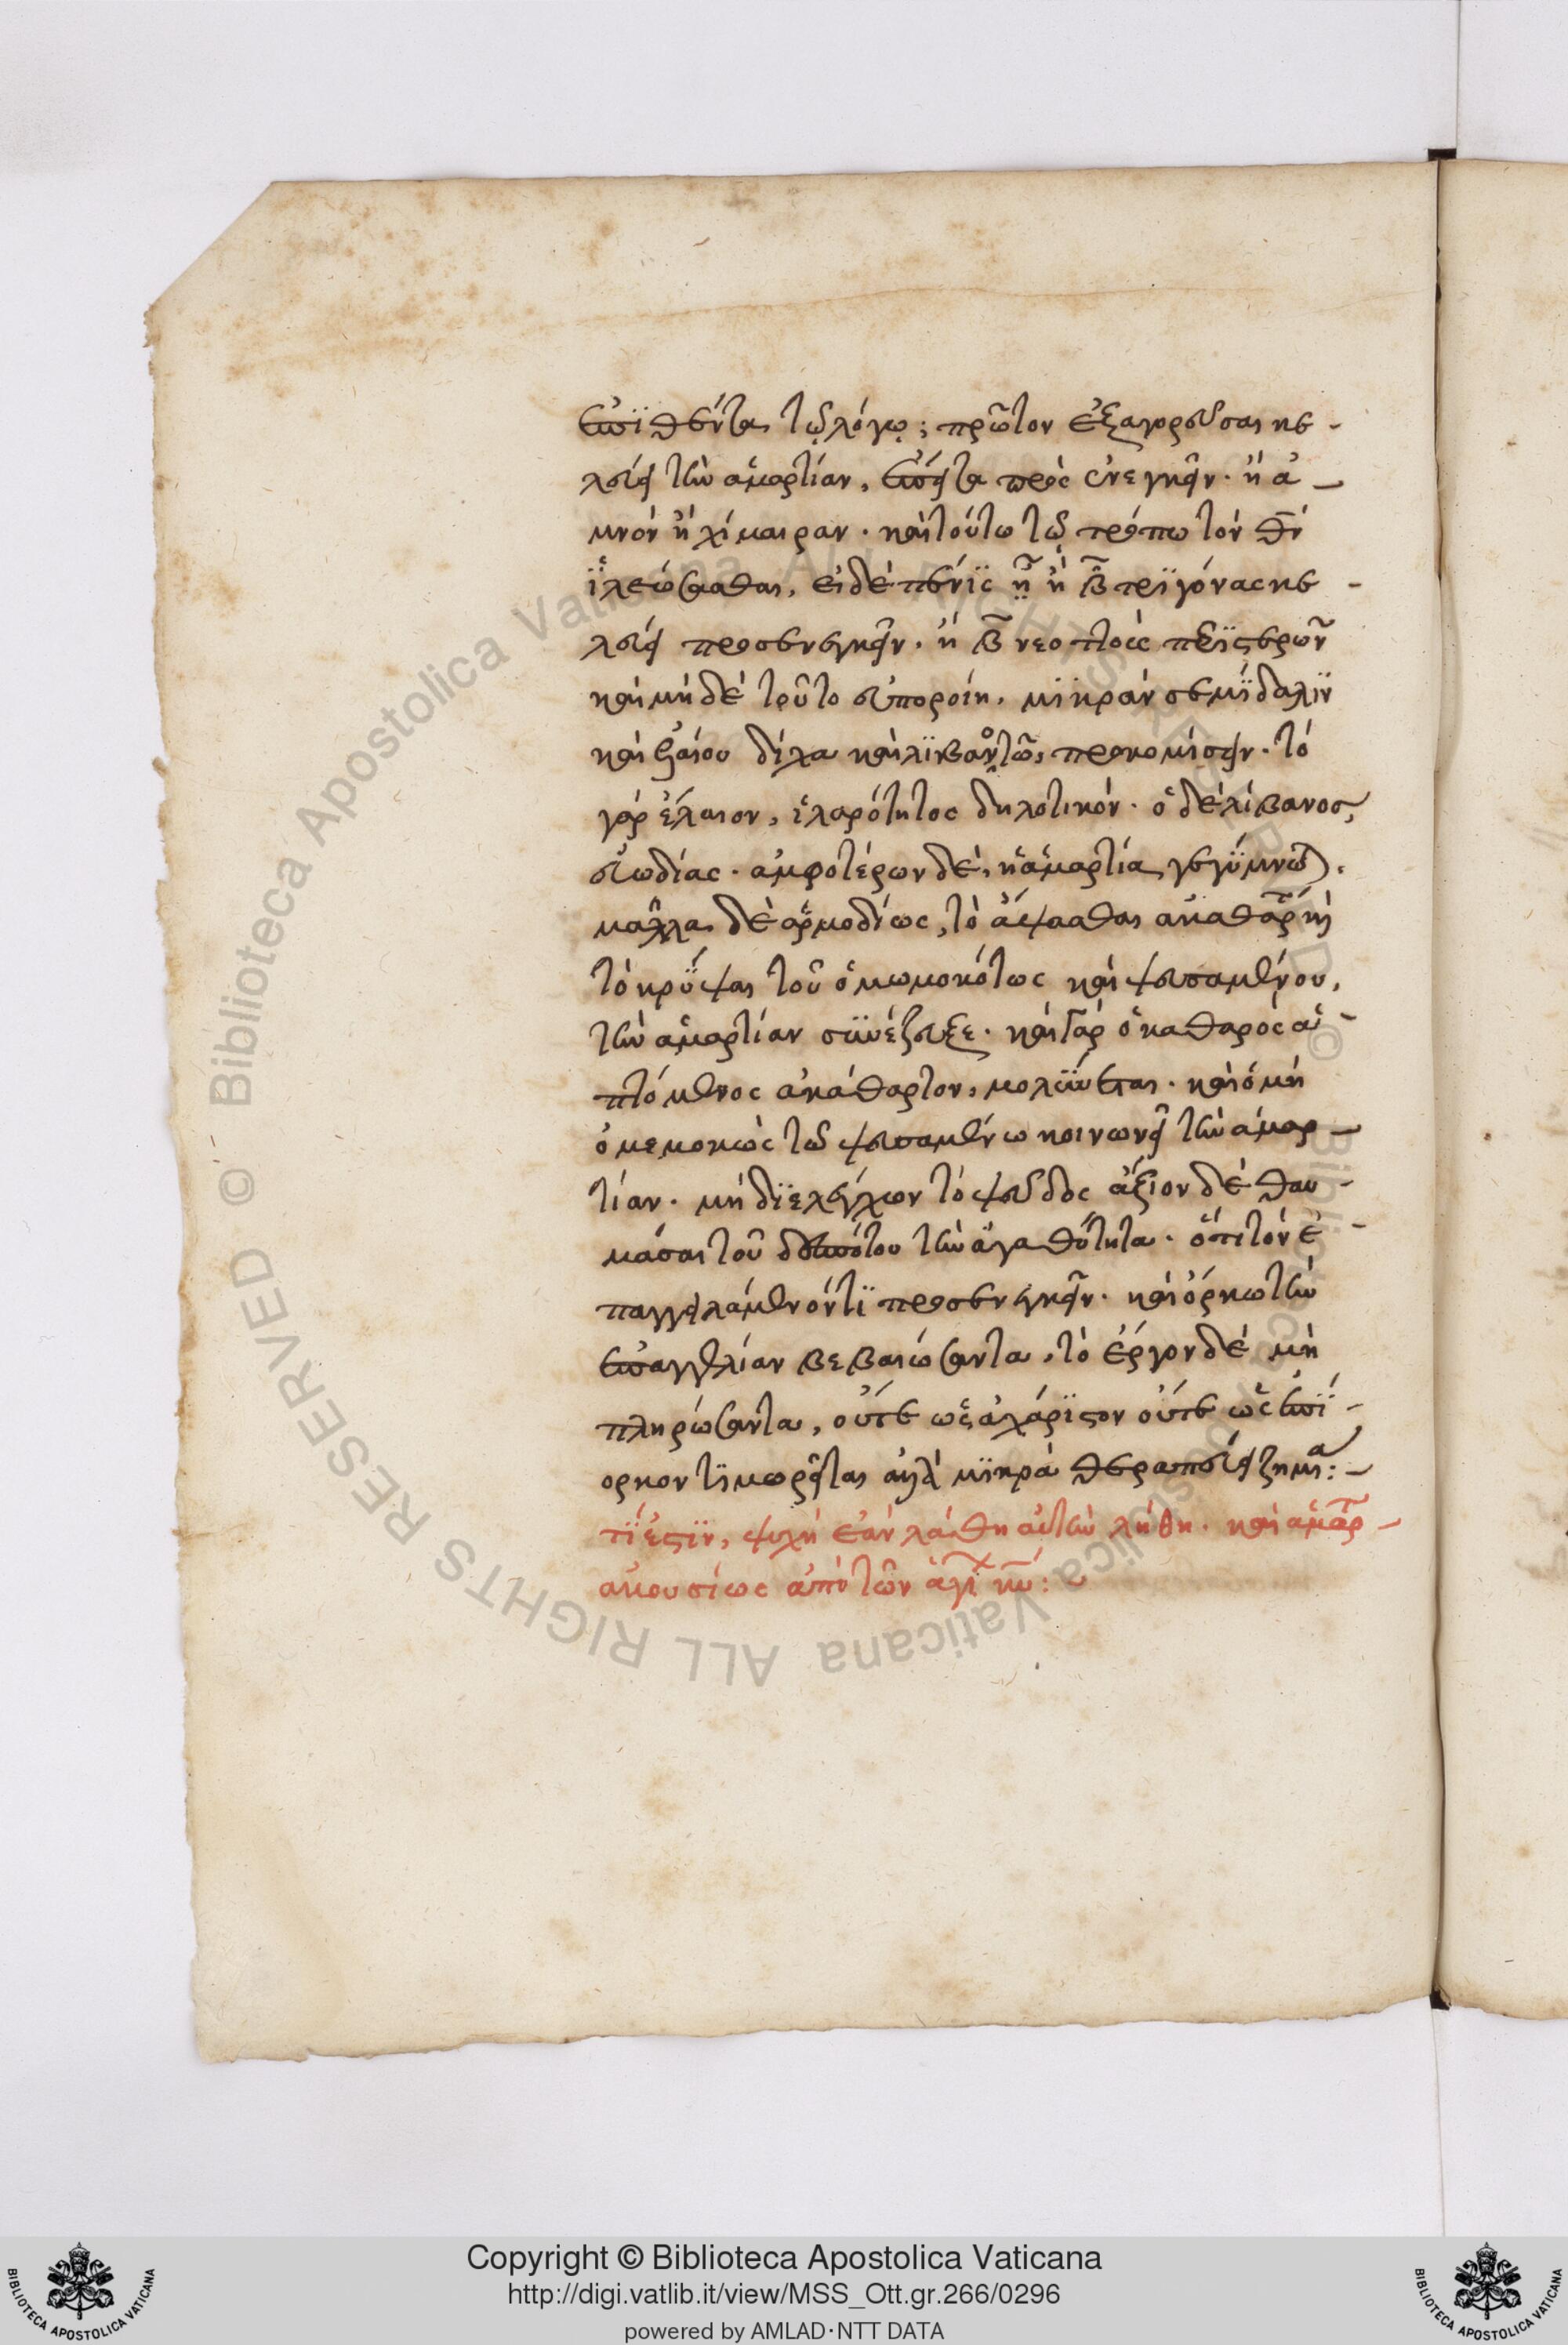 ἐπϊθέντα τῷ λόγῳ; πρῶτον ἐξαγορεῦσαι κε-
λεύει τὴν ἁμαρτίαν, ἔπειτα πρὸς ἐνεγκεῖν. ἢ ἀ-
μνὸν ἢ χίμαιραν. καὶ τούτω τῷ τρόπω τὸν θν
ϊλεώσασθαι, εἰ δὲ πένϊς ἢ β τρϊγόνας κε-
λεύει προσενεγκεῖν. ἢ β νεοττοὺς περϊστερῶν
καὶ μὴ δὲ τοῦτο εὐποροίη, μϊκρὰν σεμϊδαλϊν
καὶ ἐλαίου δίχα καὶ λϊβανωτοῦ, προκομίσειν. τὸ
γὰρ ἔλαιον, ἱλαρότητος δηλοτικόν. ὁ δὲ λίβανος,
εὐωδίας. ἀμφοτέρων δὲ, ἡ ἁμαρτία γεγϋμνωται.
μάλλα δὲ ἁρμοδίως, τὸ ἅψασθαι ἀκαθάρ καὶ
τὸ κρϋψαι τοῦ ὀμωμοκότως καὶ ψευσαμένου,
τὴν ἁμαρτίαν σϋνέζευξε. καὶ γὰρ ὁ καθαρὸς ἁ-
πτόμενος ἀκάθαρτον, μολϋνεται. καὶ ὁ μὴ
ὀμεμοκὼς τῶ ψευσαμένω κοινωνεῖ τὴν ἁμαρ-
τίαν. μὴ δϊελέγχων τὸ ψεῦδος ἄξιον δὲ θαυ-
μάσαι τοῦ δεσπότου τὴν ἀγαθότητα. ὅτι τὸν ἐ-
παγγειλάμενόν τϊ προσενεγκεῖν. καὶ ὅρκω τὴν
ἐπαγγελίαν βεβαιώσαντα, τὸ ἔργον δὲ μὴ
πληρώσαντα, οὔτε ὡς ἀχάρϊστον οὔτε ὡς ἐπϊ-
ορκον τϊμωρεῖται ἀλλὰ μϊκρὰ θεραπεύει ζημία:-
τϊ ἐστϊν, ψυχὴ ἐὰν λάθη αὐτὴν λήθη. καὶ ἁμάρ-
ἀκουσίως ἀπὸ τῶν ἁγί κυ: